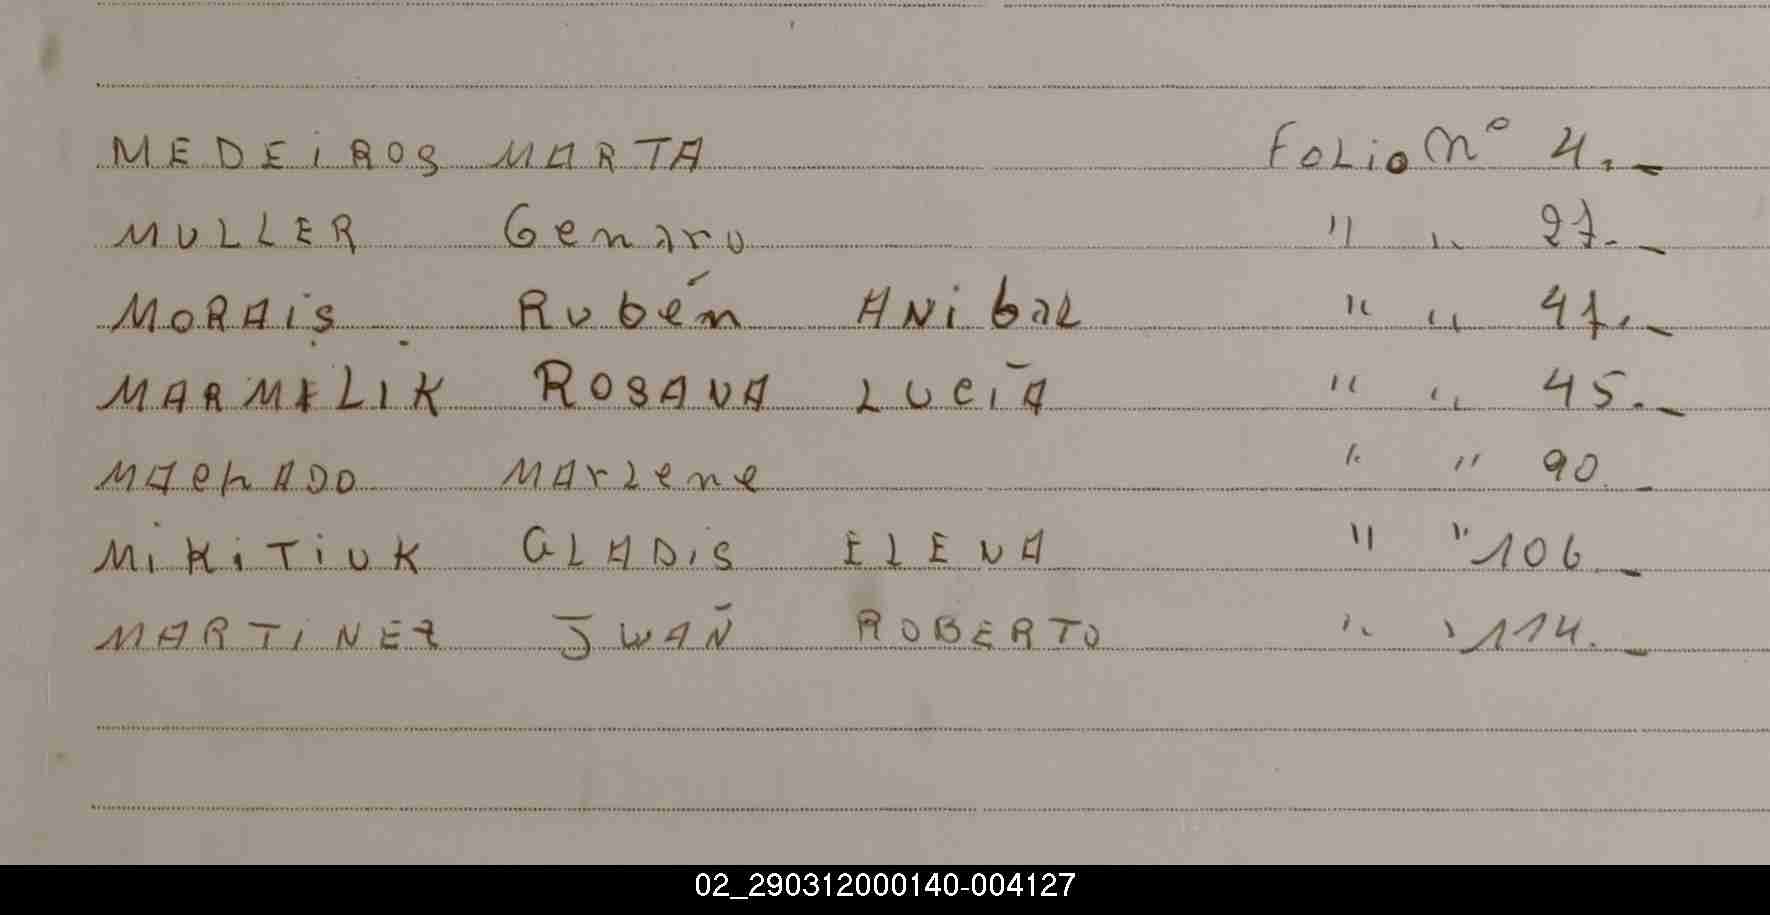 MEDEiROS MARTA Folio Nº 4.-
MULLER Genaro " " 27.-
MORAis Rubén ANibal " " 41.-
MARMELIK ROSANA LUCíA " " 45.-
MACHADO MARlene " " 90.-
MiKiTiUK GLADis ELENA " " 106.-
MARTiNEZ JWAÑ ROBERTO " " 114.-
02_290312000140-004127